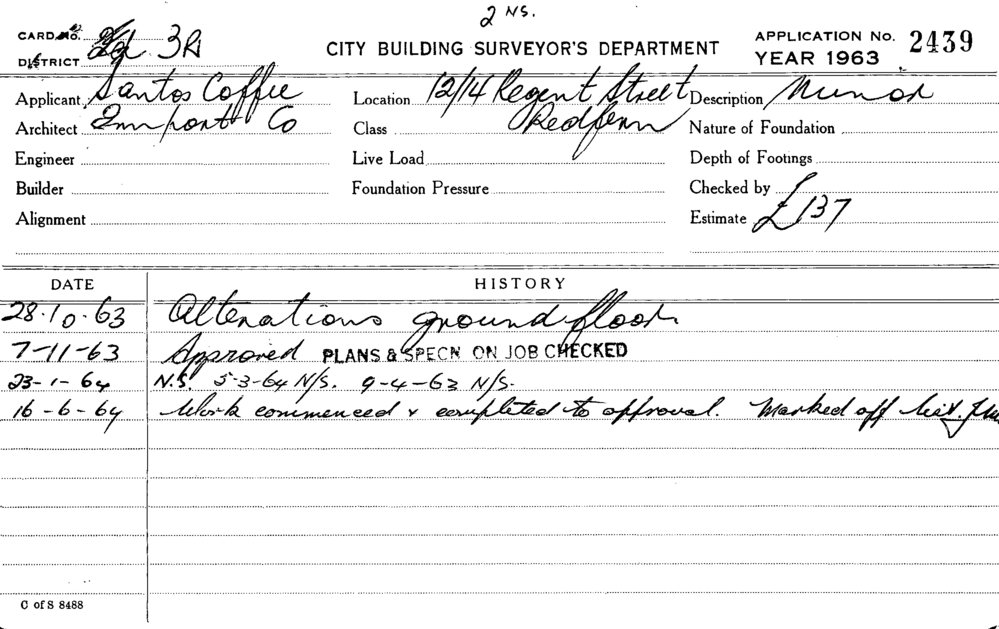 2 NS.
CARD No.
DISTRICT 3R
CITY BUILDING SURVEYOR'S DEPARTMENT
APPLICATION No. 2439
YEAR 1963
Applicant Santos Coffee
Location 12/14 Regent Street
Description Minor
Architect Import Co
Class Redfern
Nature of Foundation
Engineer
Live Load
Depth of Footings
Builder
Foundation Pressure
Checked by
Alignment
Estimate £137
DATE HISTORY
28.10.63 Alterations ground floor
7-11-63 Approved PLANS & SPECN ON JOB CHECKED
23-1-64 N.S. 5-3-64 N/S. 9-4-63 N/S.
16-6-64 Work commenced & completed to approval. Marked off list.
C of S 8488